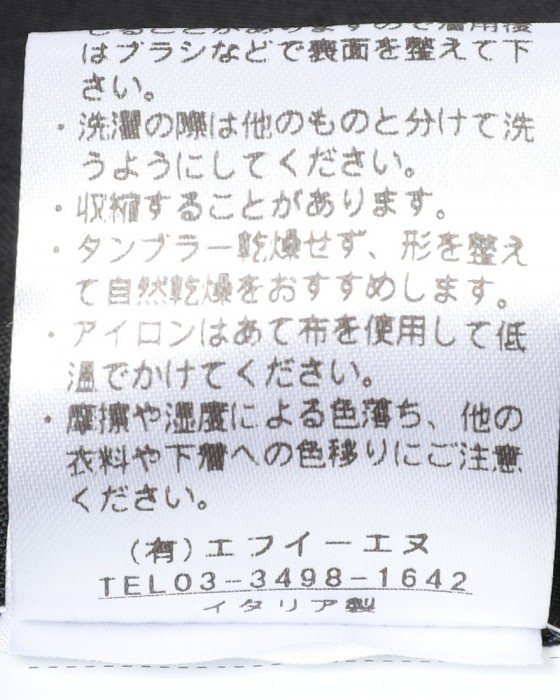 じることがありますので着用後
はブラシなどで表面を整えて下
さい。
・洗濯の際は他のものと分けて洗
うようにしてください。
・収縮することがあります。
・タンブラー乾燥せず、形を整え
て自然乾燥をおすすめします。
・アイロンはあて布を使用して低
温でかけてください。
・摩擦や湿度による色落ち、他の
衣料や下着への色移りにご注意
ください。
(有)エフイーエヌ
TEL03-3498-1642
イタリア製